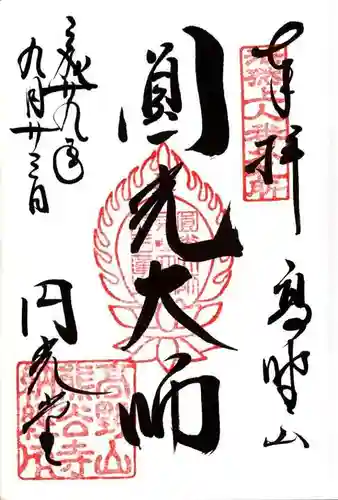 奉拝
高野山
圓光大師
平成廿九年
九月廿三日
円光堂
高野山
熊谷寺